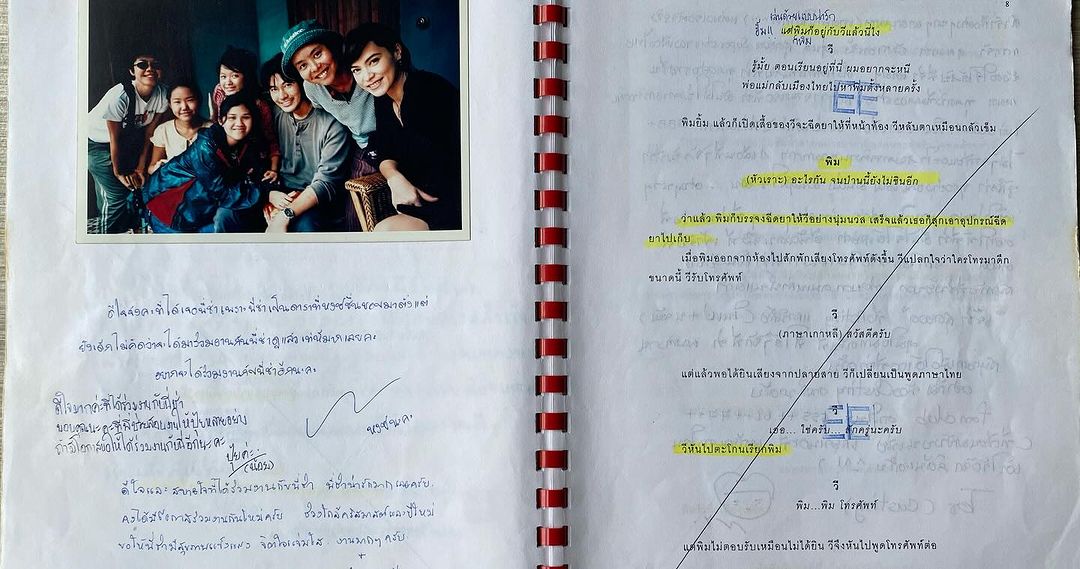 ดีใจจังค่ะที่ได้เจอพี่ช่าเพราะพี่ช่าเป็นดาราที่
ยังเด็ก ไม่คิดว่าจะได้มาร่วมงานกับพี่ช่า
อยากจะได้ร่วมงานกับพี่ช่าอีกนะคะ
ดีใจมากค่ะที่ได้ร่วมงานกับพี่ช่า
ขอบคุณนะคะที่พี่ช่วยสอนงานให้ปุ้ยหลายอย่าง
ถ้ามีโอกาสขอให้ได้ร่วมงานกับพี่อีกนะคะ
ปุ้ยค่ะ
ดีใจและสบายใจที่ได้ร่วมงานกับพี่ช่า พี่ช่าน่ารักมากเลยครับ
คงได้มีโอกาสร่วมงานกันใหม่ครับ ช่วงใกล้คริสมาสต์และปีใหม่
ขอให้พี่ช่ามีสุขภาพแข็งแรง จิตใจแจ่มใส งานมากๆ ครับ
8
เล่นด้วยแบบน่ารัก
แต่พิมก็อยู่กับวีแล้วนี่ไง
วี
รู้มั้ย ตอนเรียนอยู่ที่นี่ ผมอยากจะหนี
พ่อแม่กลับเมืองไทยไปหาพิมตั้งหลายครั้ง
พิมยิ้ม แล้วก็เปิดเสื้อของวีจะฉีดยาให้ที่หน้าท้อง วีหลับตาเหมือนกลัวเข็ม
พิม
(หัวเราะ) อะไรกัน จนป่านนี้ยังไม่ชินอีก
ว่าแล้ว พิมก็บรรจงฉีดยาให้วีอย่างนุ่มนวล เสร็จแล้วเธอก็ลุกเอาอุปกรณ์ฉีด
ยาไปเก็บ
เมื่อพิมออกจากห้องไปสักพักเสียงโทรศัพท์ดังขึ้น วีแปลกใจว่าใครโทรมาดึก
ขนาดนี้ วีรับโทรศัพท์
วี
(ภาษาเกาหลี) สวัสดีครับ
แต่แล้วพอได้ยินเสียงจากปลายสาย วีก็เปลี่ยนเป็นพูดภาษาไทย
วี
เออ... ใช่ครับ... สักครู่นะครับ
วีหันไปตะโกนเรียกพิม
วี
พิม...พิม โทรศัพท์
แต่พิมไม่ตอบรับเหมือนไม่ได้ยิน วีจึงหันไปพูดโทรศัพท์ต่อ